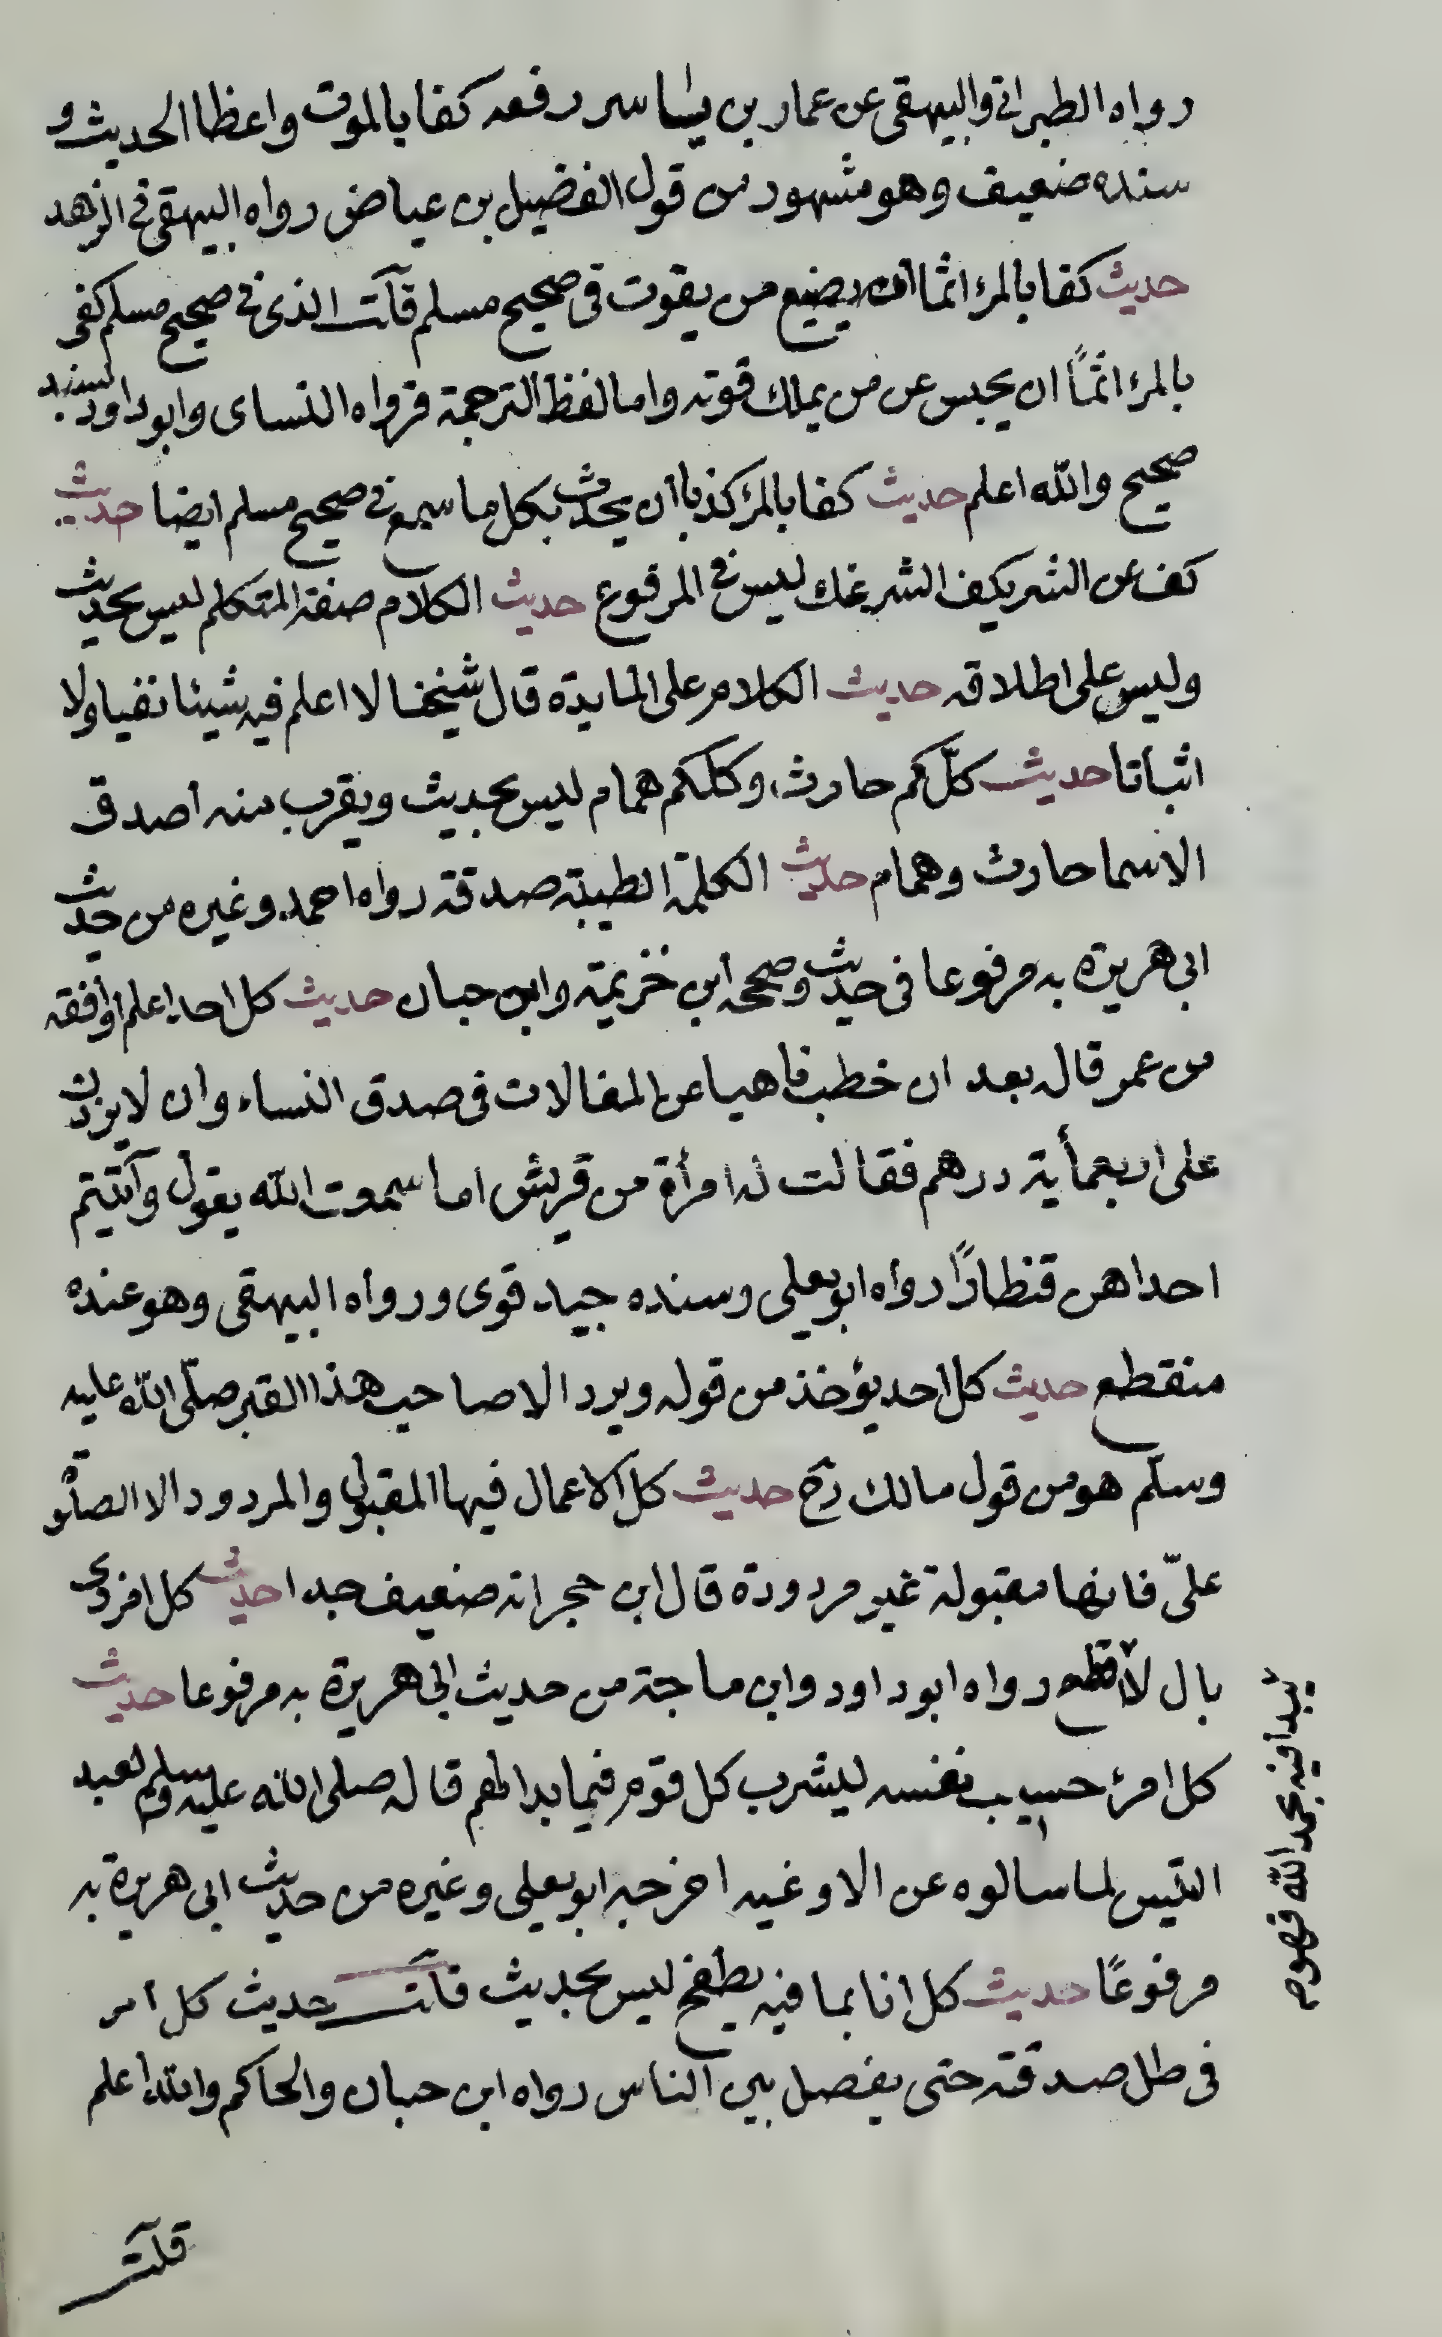 رواه الطبراني والبيهقى عن عمار بن ياسر رفعه كفا بالموت واعظا الحديث و
سنده ضعيف وهو مشهور من قول الفضيل بن عياض رواه البيهقى فى الزهد
حديث كفا بالمرء اثما ان يضيع من يقوت فى صحيح مسلم قلت الذى فى صحيح مسلم كفى
بالمرء اثماً ان يحبس عن من يملك قوته واما لفظ الترجمة فرواه النساى وابو داود بسند
صحيح والله اعلم حديث كفا بالمرء كذبا أن يحدث بكل ما سمع فى صحيح مسلم ايضا حديث
كف عن الشر يكف الشر عنك ليس فى المرفوع حديث الكلام صفة المتكلم ليس بحديث
وليس على اطلاقه حديث الكلام على المايدة قال شيخنا لا اعلم فيه شيئا نفيا ولا
اثباتا حديث كلّكم حارث وكلكم همام ليس بحديث ويقرب منه أصدق
الاسما حارث وهمام حديث الكلمة الطيبة صدقة رواه احمد وغيره من حديث
ابى هريرة به مرفوعا فى حديث وصححه أبن خزيمة وابن حبان حديث كل احد اعلم أو أفقه
من عمر قاله بعد ان خطب ناهيا عن المغالات فى صدق النساء وان لا يزدن
على اربعمأية درهم فقالت له امرأة من قريش اما سمعت الله يقول وآتيتم
احداهن قنطارًا رواه ابو يعلى وسنده جيد قوى ورواه البيهقى وهو عنده
منقطع حديث كل احد يؤخذ من قوله ويرد الا صاحب هذا القبر صلّى الله عليه
وسلّم هو من قول مالك رح حديث كل الاعمال فيها المقبول والمردود الا الصلوة
علىّ فانها مقبولة غير مردودة قال ابن حجر انه ضعيف جدا حديث كل امر ذى
بال لا اقطع رواه ابو داود وابن ماجة من حديث ابى هريرة به مرفوعا حديث
كل امرئ حسيب نفسه ليشرب كل قوم فيما بدا لهم قاله صلى الله عليه وسلم لعبد
القيس لما سالوه عن الاوعيه اخرجه ابو يعلى وغيره من حديث ابى هريرة به
مرفوعًا حديث كل انا بما فيه يطفح ليس بحديث قلت حديث كل أمر
فى ظل صدقته حتى يفصل بين الناس رواه ابن حبان والحاكم والله أعلم
قلت
يبدأ فيه بحمد الله فهوم